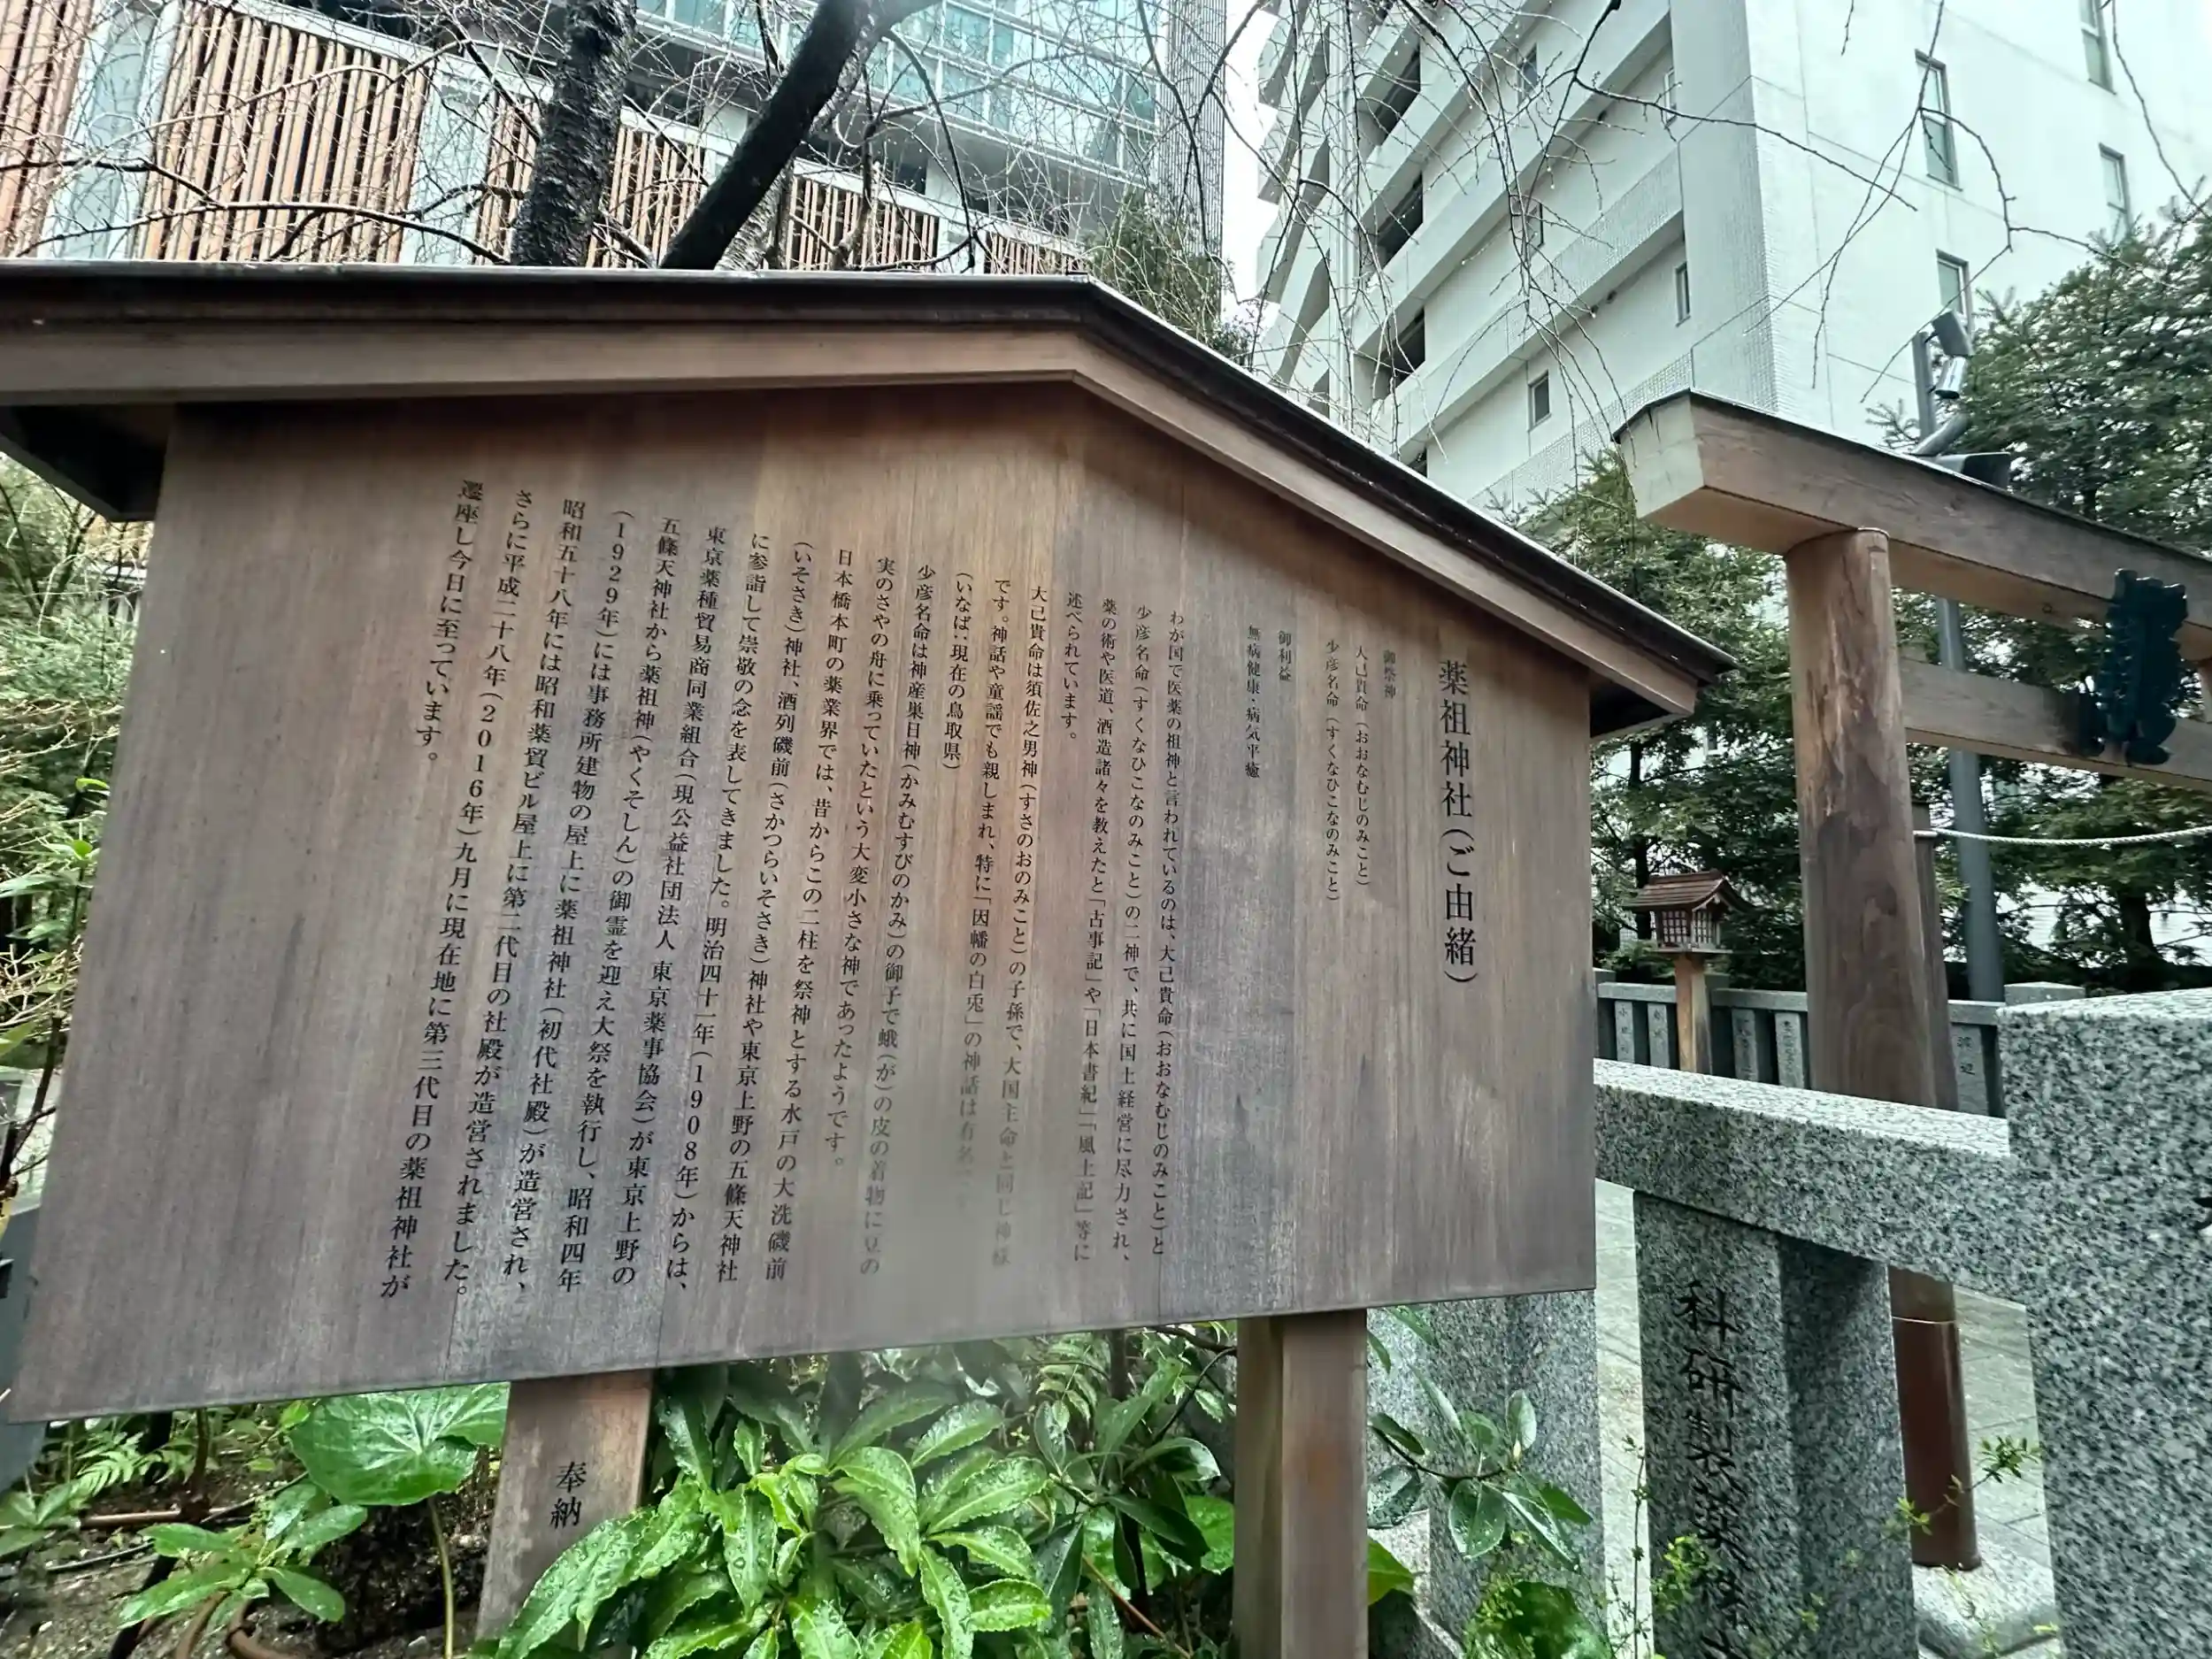 薬祖神社(ご由緒)
御祭神
大己貴命(おおなむじのみこと)
少彦名命(すくなひこなのみこと)
御利益
無病健康・病気平癒
わが国で医薬の祖神と言われているのは、大己貴命(おおなむじのみこと)と
少彦名命(すくなひこなのみこと)の二神で、共に国土経営に尽力され、
薬の術や医道、酒造諸々を教えたと「古事記」や「日本書紀」「風土記」等に
述べられています。
大己貴命は須佐之男神(すさのおのみこと)の子孫で、大国主命と同じ神様
です。神話や童謡でも親しまれ、特に「因幡の白兎」の神話は有名
(いなば:現在の鳥取県)
少彦名命は神産巣日神(かみむすびのかみ)の御子で蛾(が)の皮の着物に豆の
実のさやの舟に乗っていたという大変小さな神であったようです。
日本橋本町の薬業界では、昔からこの二柱を祭神とする水戸の大洗磯前
(いそさき)神社、酒列磯前(さかつらいそさき)神社や東京上野の五條天神社
に参詣して崇敬の念を表してきました。明治四十一年(1908年)からは、
東京薬種貿易商同業組合(現公益社団法人 東京薬事協会)が東京上野の
五條天神社から薬祖神(やくそしん)の御霊を迎え大祭を執行し、昭和四年
(1929年)には事務所建物の屋上に薬祖神社(初代社殿)が造営され、
昭和五十八年には昭和薬貿ビル屋上に第二代目の社殿が造営されました。
さらに平成二十八年(2016年)九月に現在地に第三代目の薬祖神社が
遷座し今日に至っています。
奉納
科研製薬株